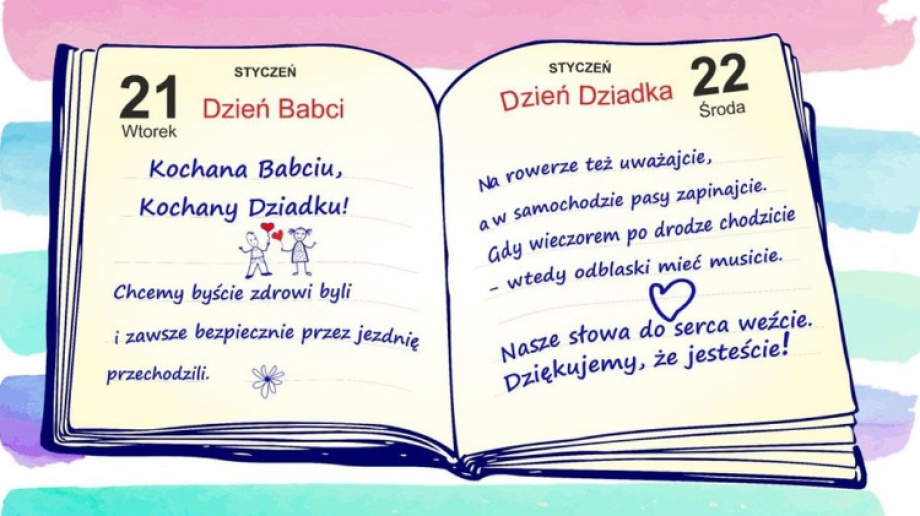 STYCZEŃ
21
Dzień Babci
Wtorek
Kochana Babciu,
Kochany Dziadku!
Chcemy byście zdrowi byli
i zawsze bezpiecznie przez jezdnię
przechodzili.
STYCZEŃ
22
Dzień Dziadka
Środa
Na rowerze też uważajcie,
a w samochodzie pasy zapinajcie.
Gdy wieczorem po drodze chodzicie
- wtedy odblaski mieć musicie.
Nasze słowa do serca weźcie.
Dziękujemy, że jesteście!